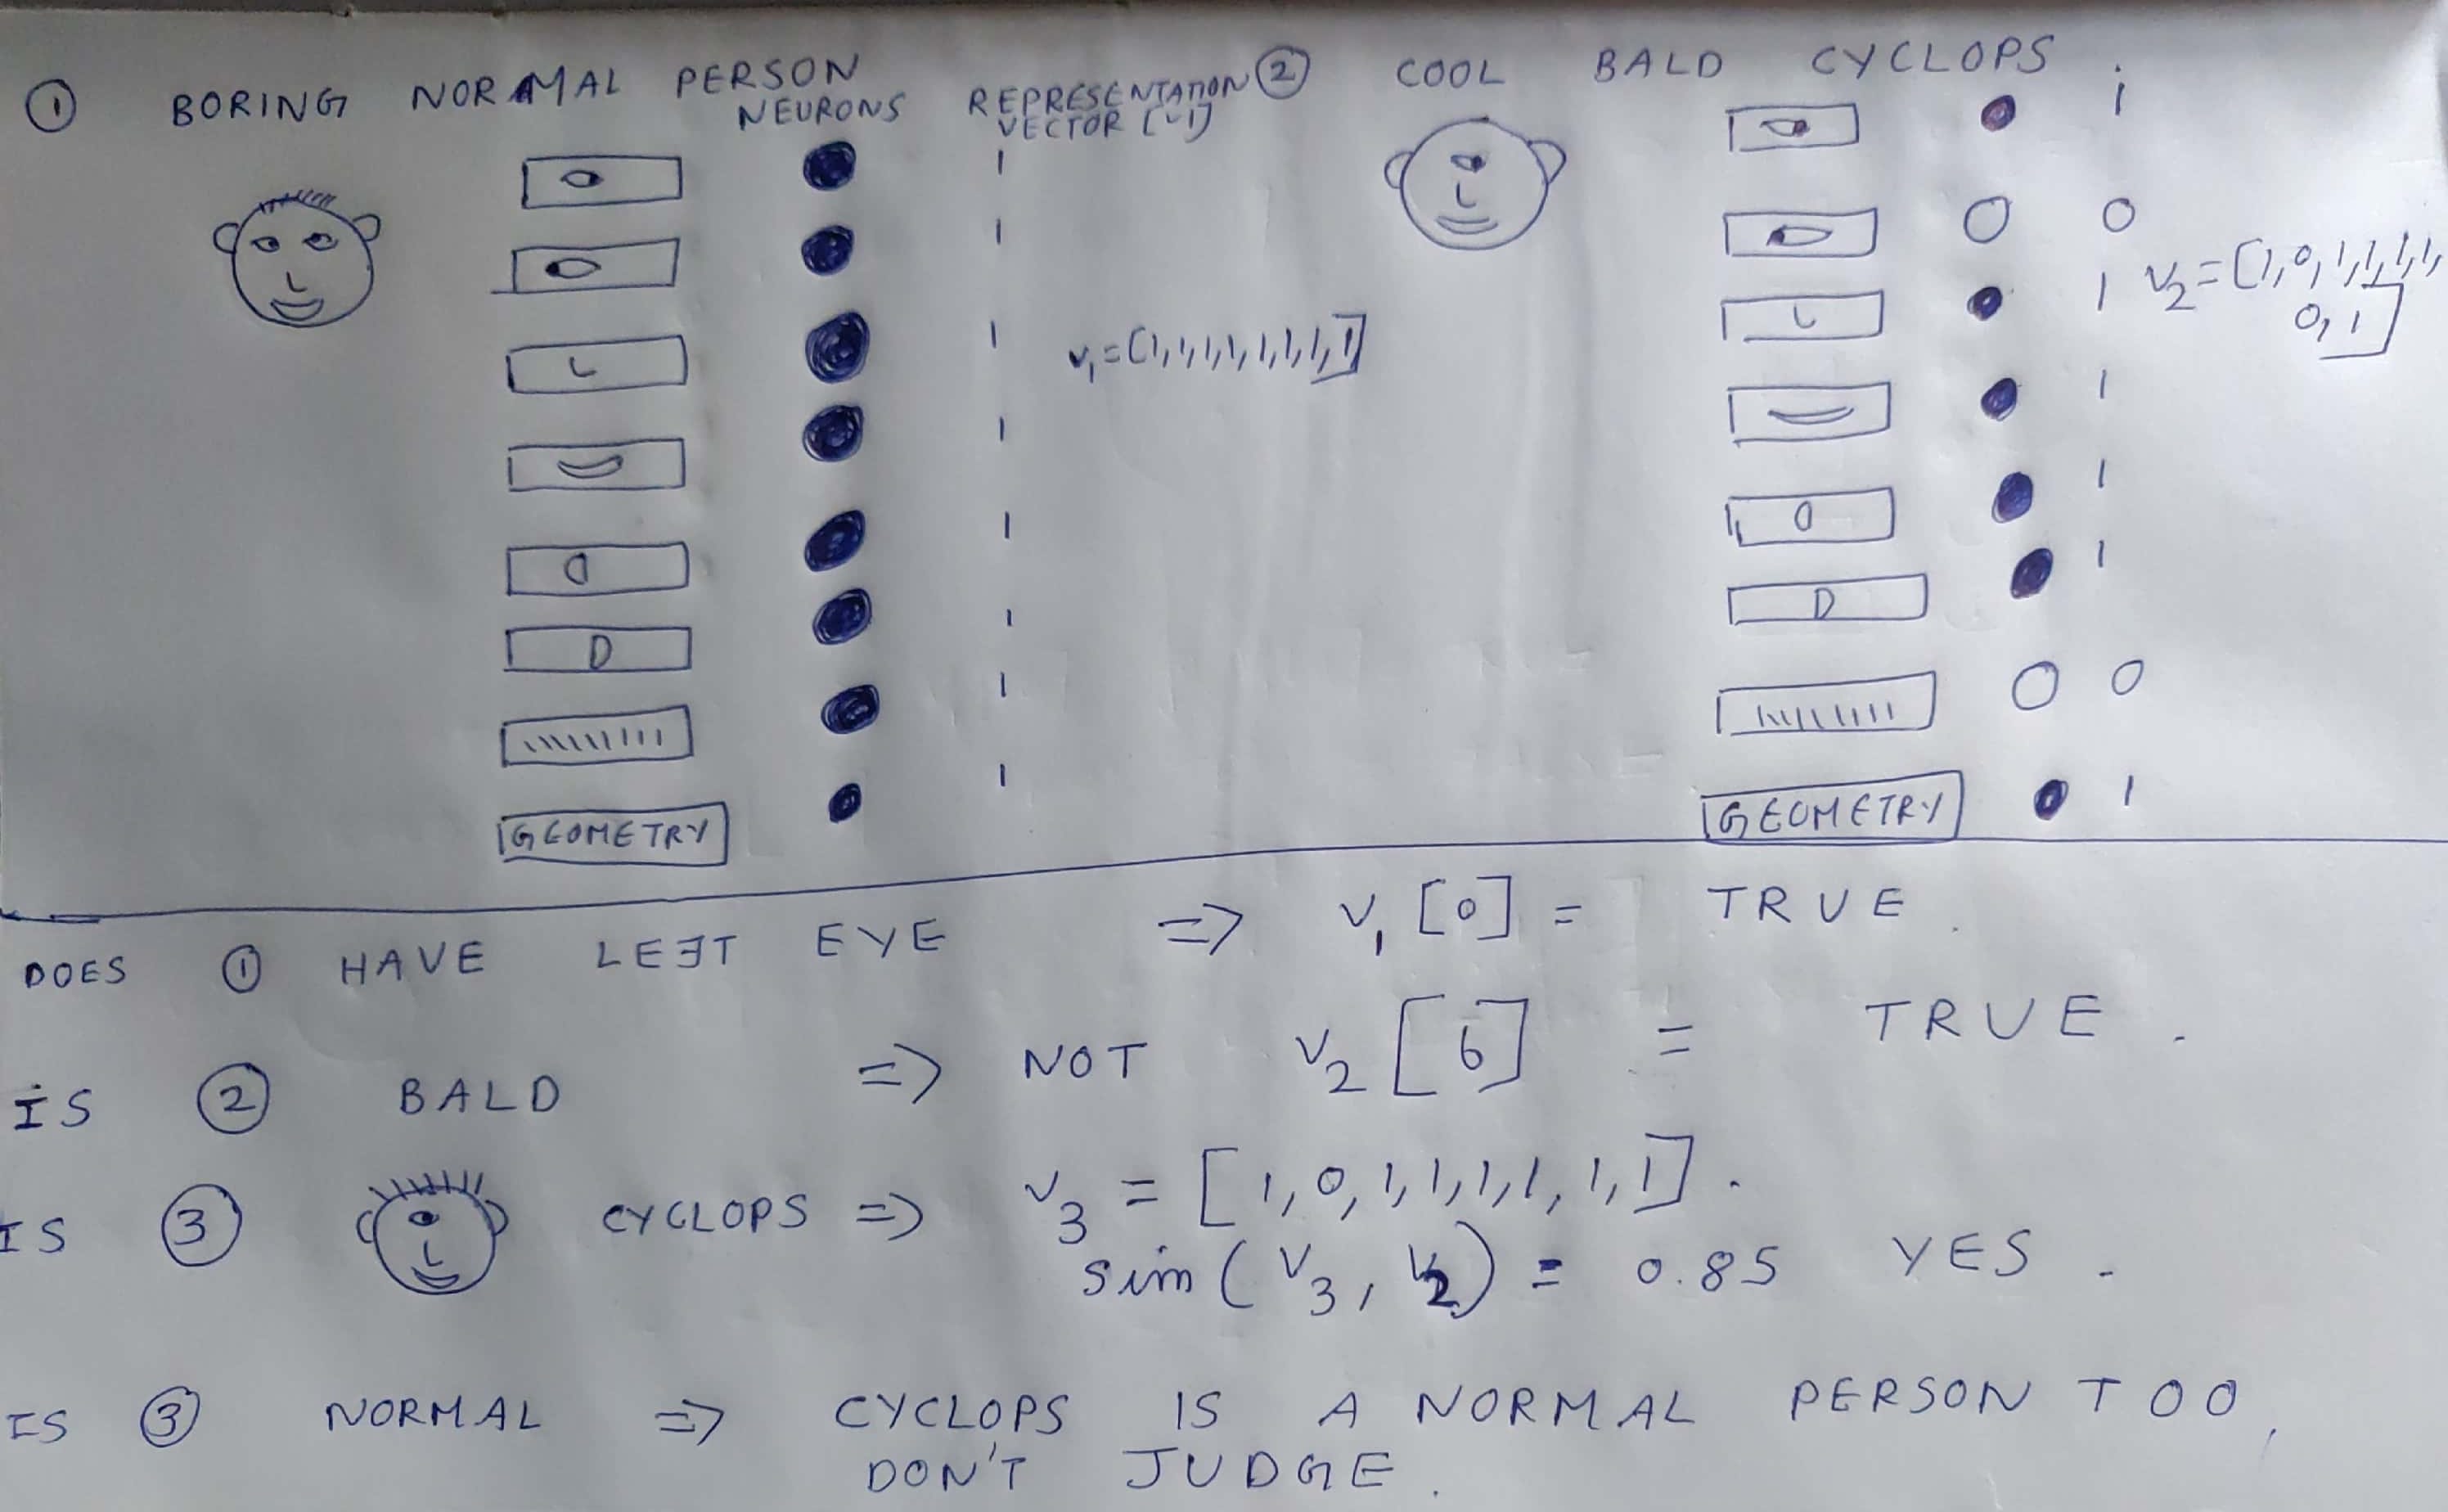 ① BORING NORMAL PERSON
NEURONS
REPRESENTATION
VECTOR (v1)
1
1
1
1
1
1
1
1
v1 = [1,1,1,1,1,1,1,1]
GEOMETRY
② COOL BALD CYCLOPS.
1
0
1
1
1
1
0
1
v2 = [1,0,1,1,1,1,
0,1]
GEOMETRY
DOES ① HAVE LEFT EYE => v1 [0] = TRUE.
IS ② BALD => NOT v2 [6] = TRUE.
IS ③ CYCLOPS => v3 = [1,0,1,1,1,1,1,1].
sim(v3, v2) = 0.85 YES.
IS ③ NORMAL => CYCLOPS IS A NORMAL PERSON TOO,
DON'T JUDGE.